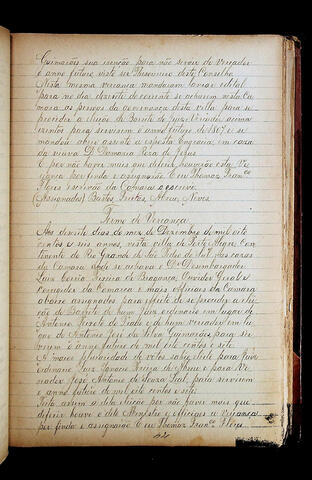 Guimarães sua isenção para não servir de Vereador
o anno futuro visto ser Thesoureiro deste Conselho
Nesta mesma vereança mandaram lavrar edital
para no dia dezoito do corrente se acharem nesta Ca-
mara as pessoas da governança desta villa para se
proceder a eleição de Barrete de Juiz Vereador
para servirem o anno futuro de 1807 e se
mandou abrir assento a exposta Engracia em caza
da viuva D. Damaria Roza de Jesus
E por não haver mais que deferir houverão esta Ve-
rança por finda e assignarão Eu Thomaz Fran.co
Flores escrivão da Camara o escrevi
(Assignados) Bastos, Freitas, Abreu, Neves
Termo de Vereança
Aos dezoito dias do mez de Dezembro de mil oito
centos e seis annos, nesta villa de Porto Alegre Con-
tinente do Rio Grande de São Pedro do Sul, nas cazas
da Camara onde se achava o Dr. Dezembargador
Luiz Corrêa Teixeira de Bragança, Ouvidor Geral e
corregedor da Comarca e mais officiaes da Camara
abaixo assignados para effeito de se proceder a elei-
ção de Barrete de hum Juiz ordenario em lugar de
Antonio Peixoto do Prado e de hum vereador em lu-
gar de Antonio José da Silva Guimarães para ser-
virem o anno futuro de mil oito centos e sete.
A mais pluralidade de votos sahio eleito para Juiz
ordenario Luiz Ignacio Pereira de Abreu e para Ve-
reador José Antonio de Souza Leal, para servirem
o anno futuro de mil oito centos e sete.
Feita assim a dita eleição por não haver mais que
deferir houve o dito Ministro e officiaes a vereança
por finda e assignarão Eu Thomaz Fran.co Flores